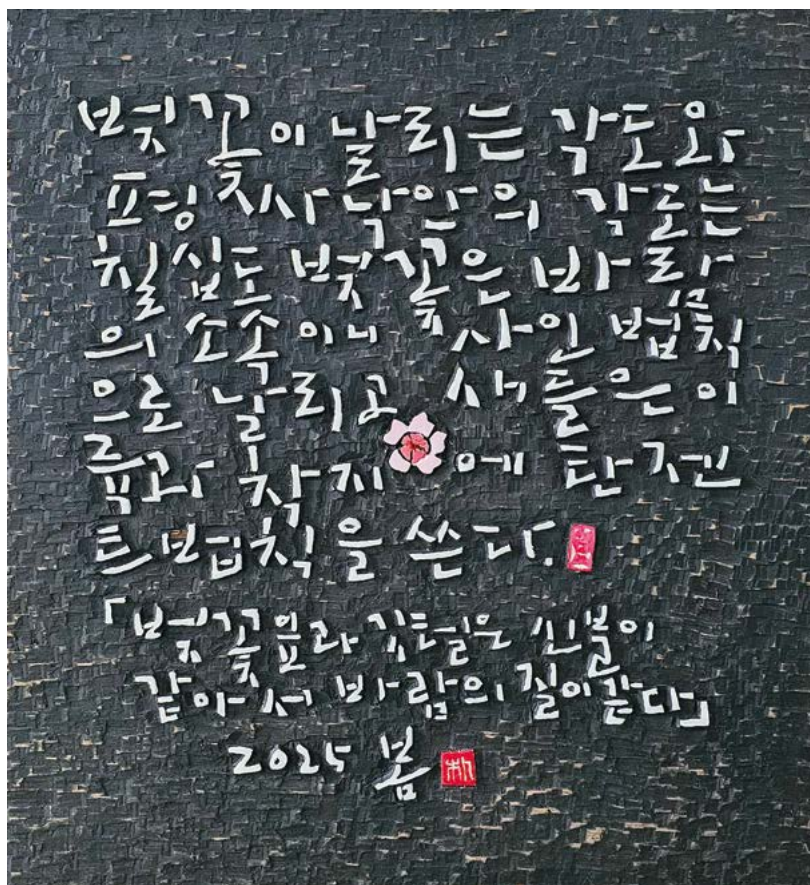 벚꽃이 날리는 각도와
포딩사 낙안의 각도는
칠십도 벚꽃은 바람
의 소속이니 사인 법칙
으로 날리고 새들은 이
륙과 착지에 탄젠
트법칙을 쓴다.
「벚꽃잎과 깃털은 신분이
같아서 바람의 질이 같다」
2025 봄